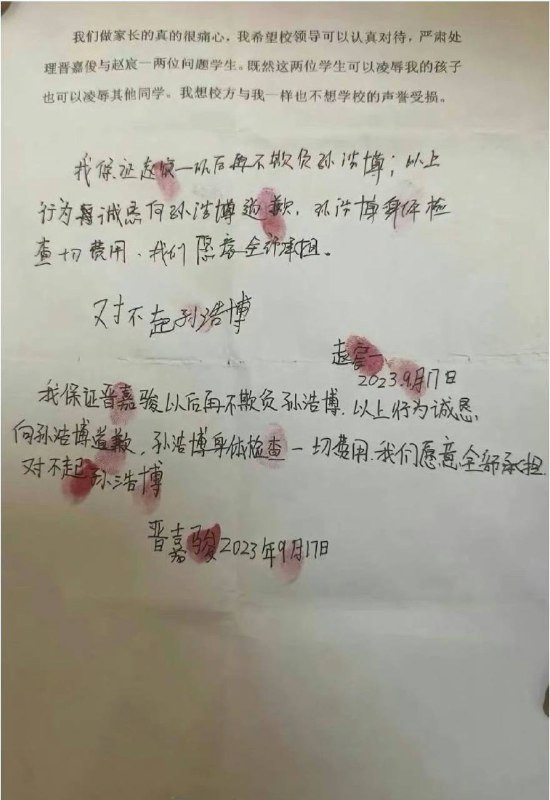 我们做家长的真的很痛心，我希望校领导可以认真对待，严肃处
理晋嘉俊与赵宸一两位问题学生。既然这两位学生可以凌辱我的孩子
也可以凌辱其他同学。我想校方与我一样也不想学校的声誉受损。
我保证赵宸一以后再不欺负孙浩博；以上
行为诚恳向孙浩博道歉，孙浩博身体检
查切费用、我们愿意全部承担。
对不起孙浩博
赵宸一
2023.9月17日
我保证晋嘉骏以后再不欺负孙浩博．以上行为诚恳
向孙浩博道歉，孙浩博身体检查一切费用．我们愿意全部承担
对不起孙浩博
晋嘉骏2023年9月17日